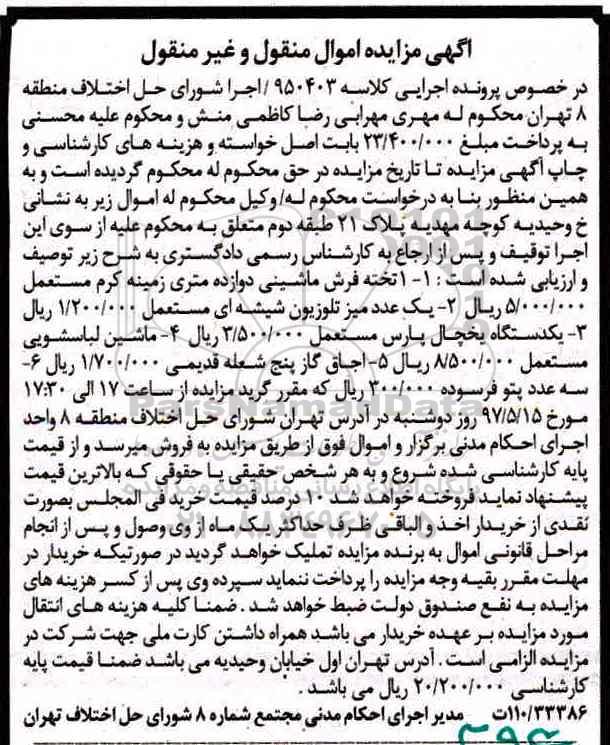 آگهی مزایده اموال منقول و غیر منقول
در خصوص پرونده اجرایی کلاسه ۹۵۰۴۰۳/اجرا شورای حل اختلاف منطقه
۸ تهران محکوم له مهری مهرابی رضا کاظمی منش و محکوم علیه محسنی
به پرداخت مبلغ ۲۳/۴۰۰/۰۰۰ بابت اصل خواسته و هزینه های کارشناسی و
چاپ آگهی مزایده تا تاریخ مزایده در حق محکوم له محکوم گردیده است و به
همین منظور بنا به درخواست محکوم له/وکیل محکوم له اموال زیر به نشانی
خ وحیدیه کوچه مهدیه پلاک ۲۱ طبقه دوم متعلق به محکوم علیه از سوی این
اجرا توقیف و پس از ارجاع به کارشناس رسمی دادگستری به شرح زیر توصیف
و ارزیابی شده است : ۱- ۱تخته فرش ماشینی دوازده متری زمینه کرم مستعمل
۵/۰۰۰/۰۰۰ ریال ۲- یک عدد میز تلوزیون شیشه ای مستعمل ۱/۲۰۰/۰۰۰ ریال
۳- یکدستگاه یخچال پارس مستعمل ۳/۵۰۰/۰۰۰ ریال ۴- ماشین لباسشویی
مستعمل ۸/۵۰۰/۰۰۰ ریال ۵- اجاق گاز پنج شعله قدیمی ۱/۷۰۰/۰۰۰ ریال ۶-
سه عدد پتو فرسوده ۳۰۰/۰۰۰ ریال که مقرر گرید مزایده از ساعت ۱۷ الی ۱۷:۳۰
مورخ ۹۷/۵/۱۵ روز دوشنبه در آدرس تهران شورای حل اختلاف منطقه ۸ واحد
اجرای احکام مدنی برگزار و اموال فوق از طریق مزایده به فروش میرسد و از قیمت
پایه کارشناسی شده شروع و به هر شخص حقیقی یا حقوقی که بالاترین قیمت
پیشنهاد نماید فروخته خواهد شد ۱۰ درصد قیمت خرید فی المجلس بصورت
نقدی از خریدار اخذ و الباقی ظرف حداکثر یک ماه از وی وصول و پس از انجام
مراحل قانونی اموال به برنده مزایده تملیک خواهد گردید در صورتیکه خریدار در
مهلت مقرر بقیه وجه مزایده را پرداخت ننماید سپرده وی پس از کسر هزینه های
مزایده به نفع صندوق دولت ضبط خواهد شد . ضمنا کلیه هزینه های انتقال
مورد مزایده بر عهده خریدار می باشد همراه داشتن کارت ملی جهت شرکت در
مزایده الزامی است . آدرس تهران اول خیابان وحیدیه می باشد ضمنا قیمت پایه
کارشناسی ۲۰/۲۰۰/۰۰۰ ریال می باشد .
۱۱۰/۳۳۳۸۶ت مدیر اجرای احکام مدنی مجتمع شماره ۸ شورای حل اختلاف تهران
ParsNamadData